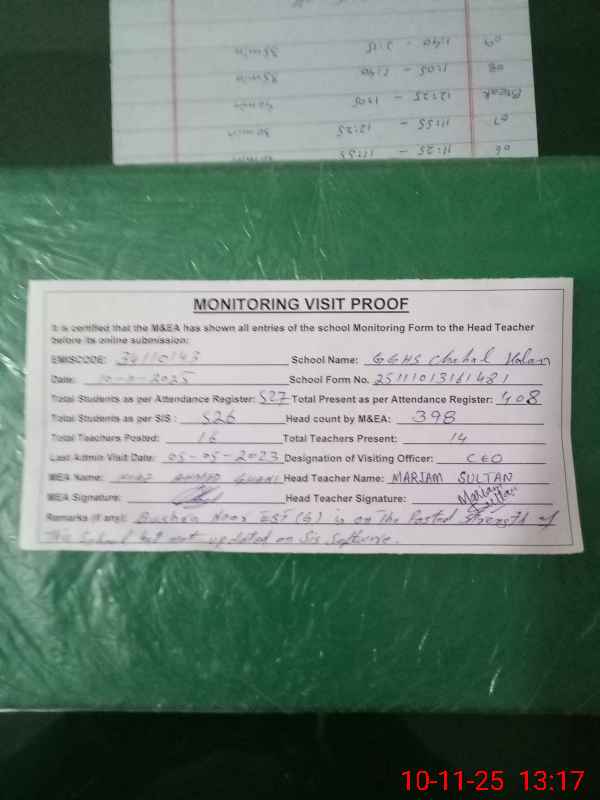 09 1:40 - 2:15 35 min
08 1:05 - 1:40 35 min
Break 12:25 - 1:05 40 min
07 11:55 - 12:25 30 min
06 11:25 - 11:55
MONITORING VISIT PROOF
It is certified that the M&EA has shown all entries of the school Monitoring Form to the Head Teacher
before its online submission:
EMISCODE: 34110143 School Name: GGHS Chahal Kalan
Date: 10-11-2025 School Form No. 25111013161481
Total Students as per Attendance Register: 527 Total Present as per Attendance Register: 408
Total Students as per SIS : 526 Head count by M&EA: 398
Total Teachers Posted: 16 Total Teachers Present: 14
Last Admin Visit Date: 05-05-2023 Designation of Visiting Officer: CEO
MEA Name: AHMED GHANI Head Teacher Name: MARIAM SULTAN
MEA Signature: Head Teacher Signature: Mariam Sultan
Remarks (if any): Bushra Noor EST (G) is on the Posted strength of
this School but not updated on Sis Software.
10-11-25 13:17